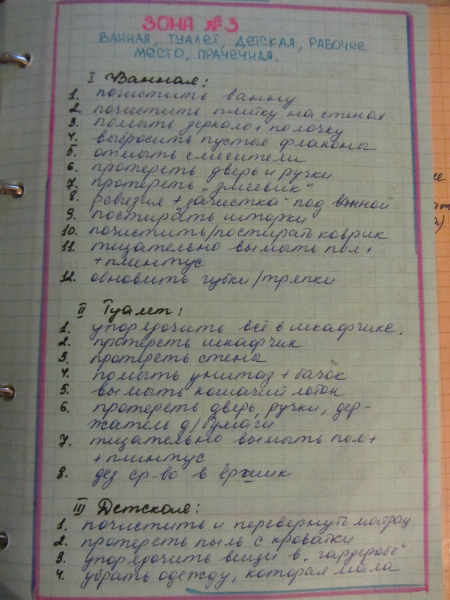 ЗОНА №3
ВАННАЯ, ТУАЛЕТ, ДЕТСКАЯ, РАБОЧЕЕ
МЕСТО, ПРАЧЕЧНАЯ.
I Ванная:
1. почистить ванну
2. почистить плитку на стенах
3. помыть зеркало + полочку
4. выбросить пустые флаконы
5. отмыть смесители
6. протереть дверь и ручки
7. протереть „змеевик"
8. ревизия + „зачистка" под ванной
9. постирать шторки
10. почистить/постирать коврик
11. тщательно вымыть пол +
+ плинтус
12. обновить губки/тряпки
II Туалет:
1. упорядочить всё в шкафчике.
2. протереть шкафчик
3. протереть стены
4. помыть унитаз + бачок
5. вымыть кошачий лоток
6. протереть дверь, ручки, дер-
жатель д/бумаги
7. тщательно вымыть пол +
+ плинтус
8. дез. ср-во в ёршик
III Детская:
1. почистить и перевернуть матрац
2. протереть пыль с кроватки
3. упорядочить вещи в „гардеробе"
4. убрать одежду, которая мала